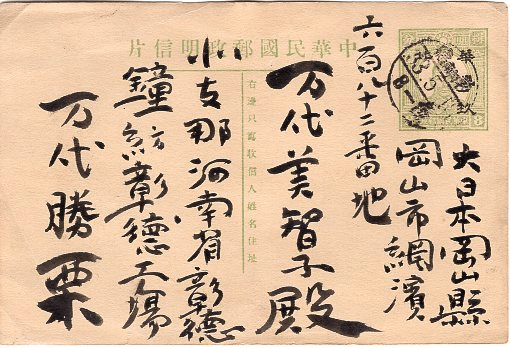 中華民國郵政明信片
大日本岡山縣
岡山市網濱
六百八十二番地
万代美智子殿
右邊只寫收信人姓名住址
北支那河南省彰德
鐘紡彰德工場
万代勝栗